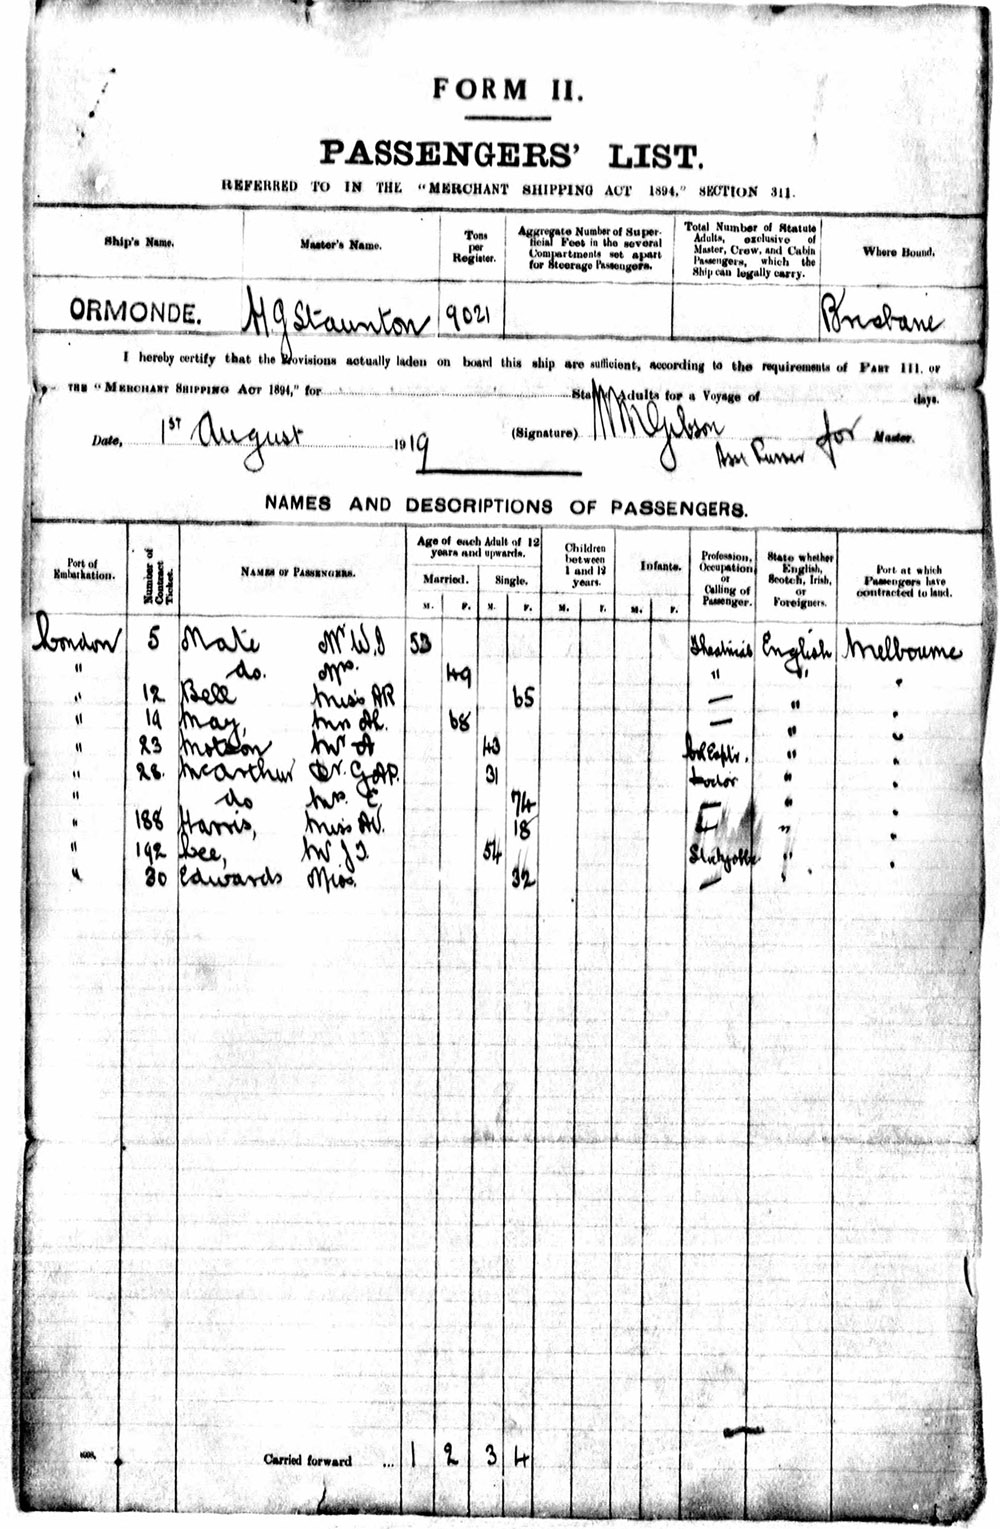 FORM II.
PASSENGERS' LIST.
REFERRED TO IN THE "MERCHANT SHIPPING ACT 1894," SECTION 311.
Ship's Name. Master's Name. Tons per Register. Aggregate Number of Superficial Feet in the several Compartments set apart for Steerage Passengers. Total Number of Statute Adults, exclusive of Master, Crew, and Cabin Passengers, which the Ship can legally carry. Where Bound.
ORMONDE. H G Staunton 9021 Brisbane
I hereby certify that the Provisions actually laden on board this ship are sufficient, according to the requirements of PART III. of
THE "MERCHANT SHIPPING ACT 1894," for Statute Adults for a Voyage of days.
Date, 1ST August 1919 (Signature) Gibson for Master.
Asst Purser
NAMES AND DESCRIPTIONS OF PASSENGERS.
Port of Embarkation. Number of Contract Ticket. NAMES OF PASSENGERS. Age of each Adult of 12 years and upwards. Children between 1 and 12 years. Infants. Profession, Occupation or Calling of Passenger. State whether English, Scotch, Irish, or Foreigners. Port at which Passengers have contracted to land.
Married. Single.
M. F. M. F. M. F. M. F.
London 5 Mate Mr W.J 53 English Melbourne
" do. Mrs. 49 " " "
" 12 Bell Miss AR 65 — " "
" 19 May, Mrs 68 — " "
" 23 Mr A 43 " "
" 28. McArthur Dr. G.AP. 31 Doctor " "
" do Mrs. E. 74 "
" 188 Harris, Miss 18 " "
" 192 Lee, Mr J 54 " "
" 30 Edwards Miss. 32 —
Carried forward ... 1 2 3 4